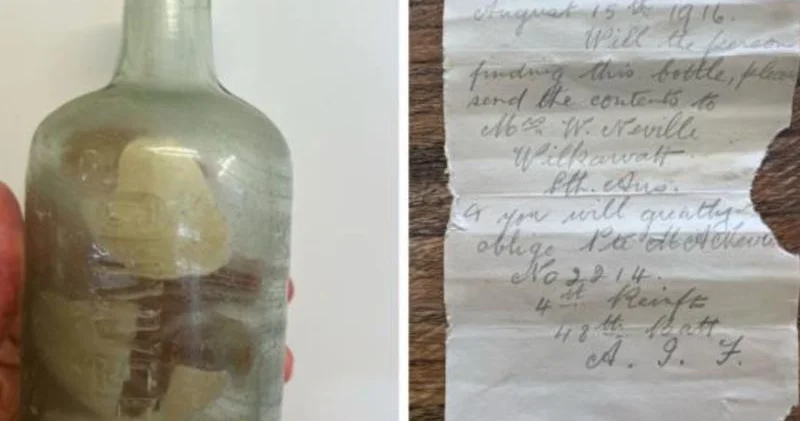 August 15th 1916.
Will the person
finding this bottle, pleas
send the contents to
Mrs W. Neville
Wilkawatt
Sth. Aus.
& you will greatly
oblige Pte M A Nevi
No 2214.
4th Reinft
48th Batt
A. I. F.